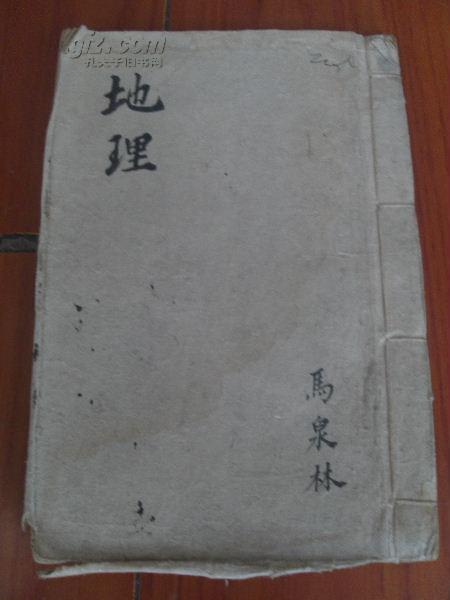 地理
馬泉林
gfz.com
孔夫子旧书网